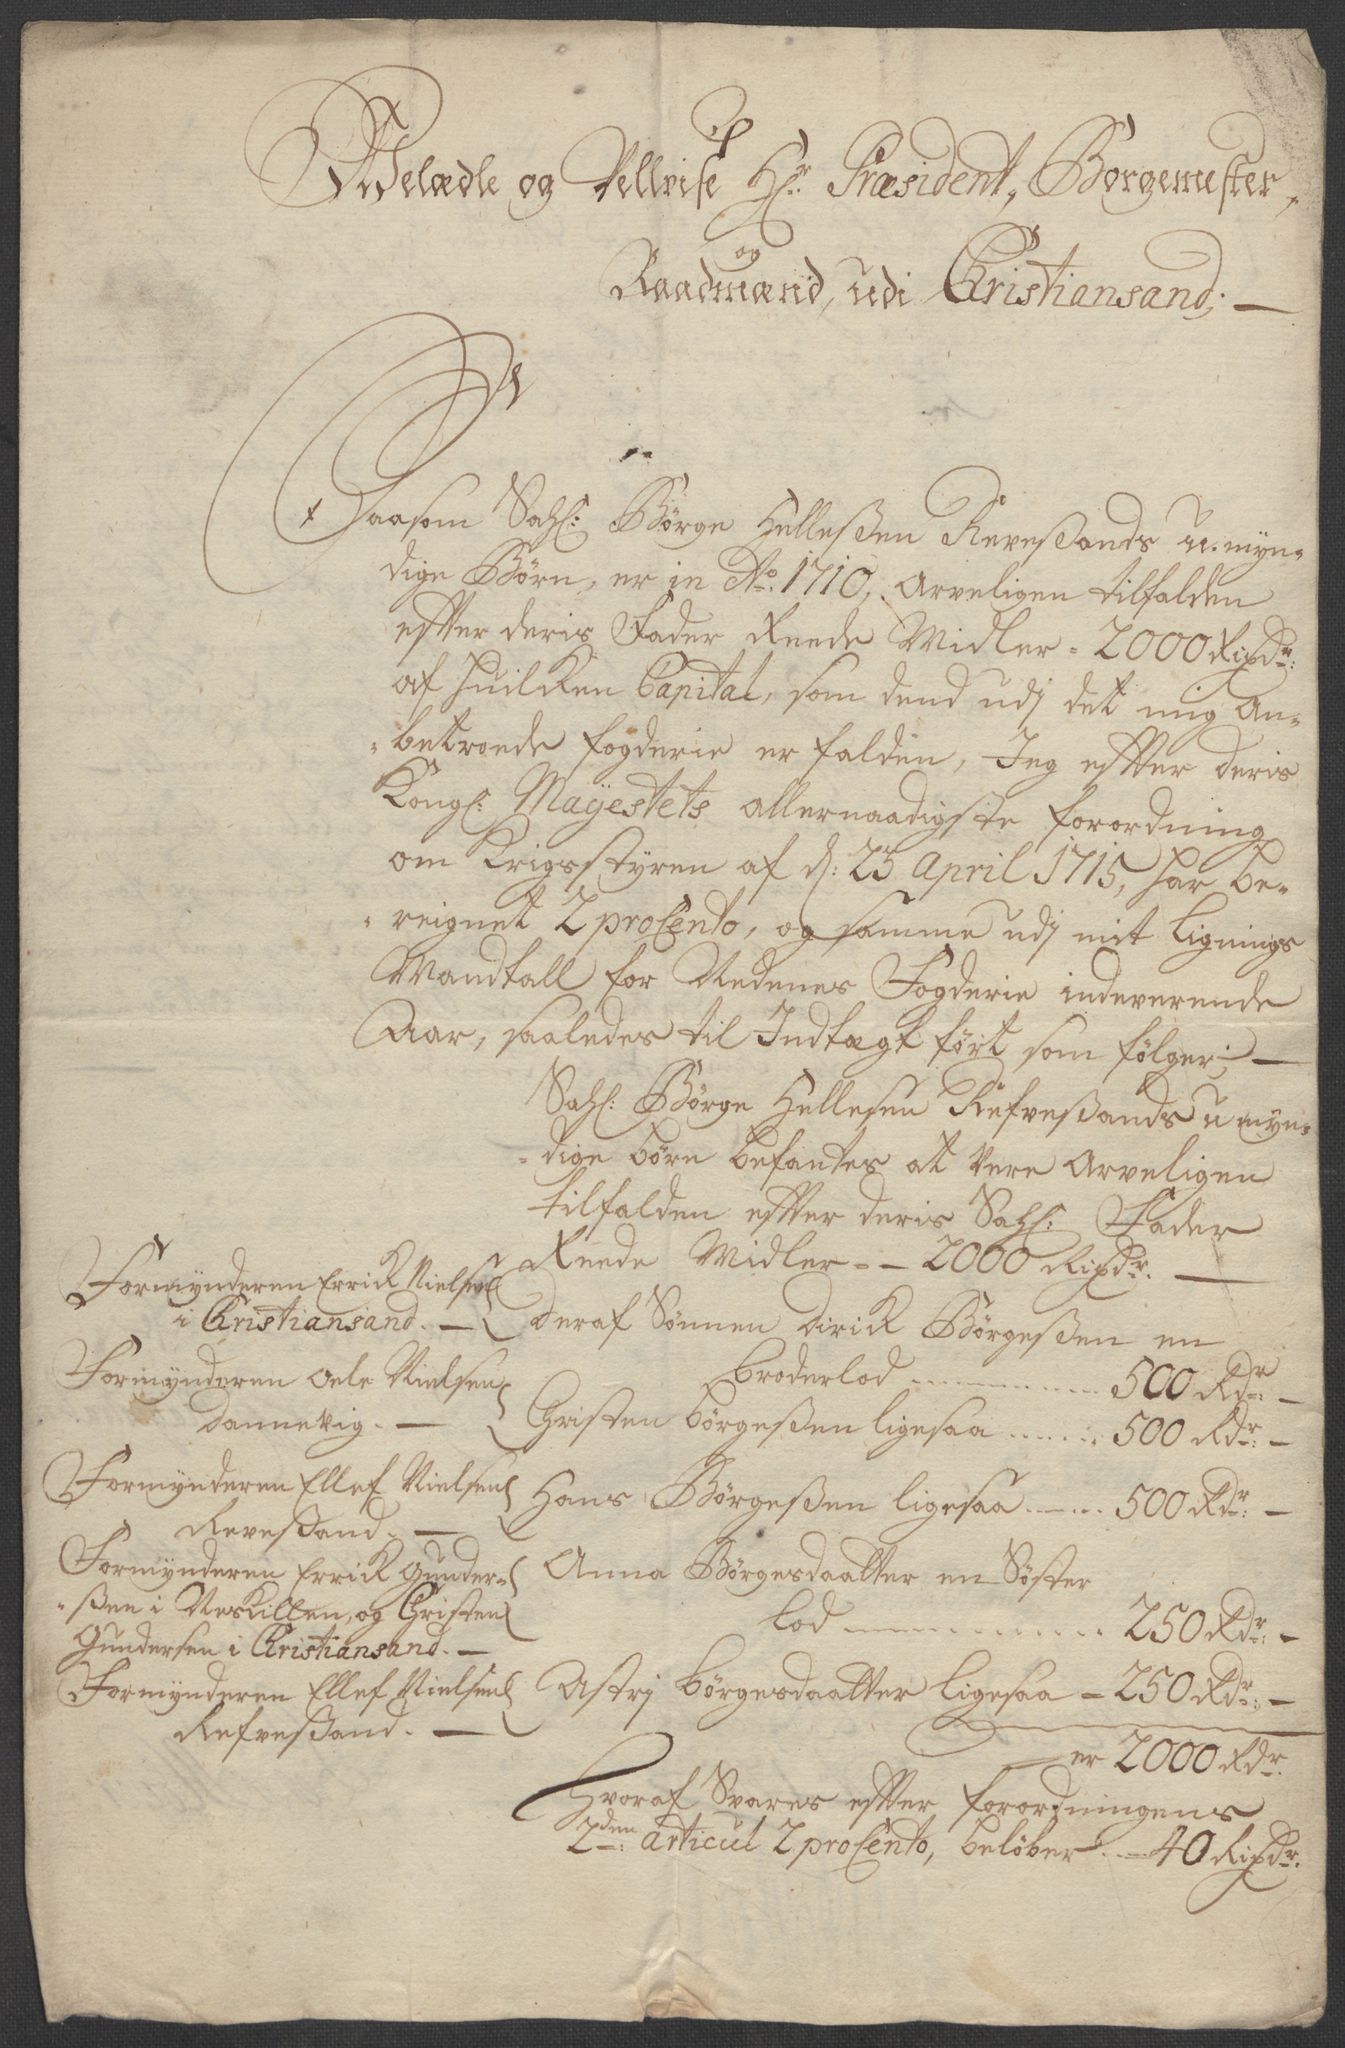 Velædle og Vellvise Hr: Præsident, Borgemester,
og
Raadmænd, udi Christiansand; —
Saasom Sahl: Børge Hellesßen Reveßands u-myn-
dige Børn, er in Ao: 1710, Arveligen tilfalden
effter deris Fader Reede Midler - 2000 Rixdr:
af huilcken Capital, som dend udj det mig An-
-betroede fogderie er falden, Jeg effter deris
Kongl: Mayestets allernaadigste forordning
om Krigsstyren af d: 25 April 1715, har be-
-reignet 2 pro Cento, og samme udj mit Lignings
Mandtall for Nedenes Fogderie indeverende
Aar, saaledes til Indtægt ført som følger; —
Sahl: Børge Hellesen Refveßands u myn-
-dige børn befantes at Vere Arveligen
tilfalden effter deris Sahl: Fader
Reede Midler - - 2000 Rixdr. —
Formynderen Errick Nielsen
i Christiansand. —
deraf Sønnen Dirick Børgeßen en
Broderlod ........... 500 Rdr: -
Formynderen Oele Nielsen
Dannevig. —
Christen børgeßen ligesaa ...... 500 Rdr: -
Formynderen Ellef Nielsen
Reveßand. —
Hans Børgeßen ligesaa ...... 500 Rdr: -
Formynderen Errick Gunder-
-ßen i Neskillen, og Christen
Gundersen i Christiansand. —
Anna Børgesdaatter en Søster
Lod ............ 250 Rdr: -
Formynderen Ellef Nielsen
Refveßand. —
Astrj børgesdaatter ligesaa - 250 Rdr: -
er 2000 Rdr.
Hvoraf Svares effter forordningens
2den: articul 2 pro Cento, beløber - 40 Rixdr.